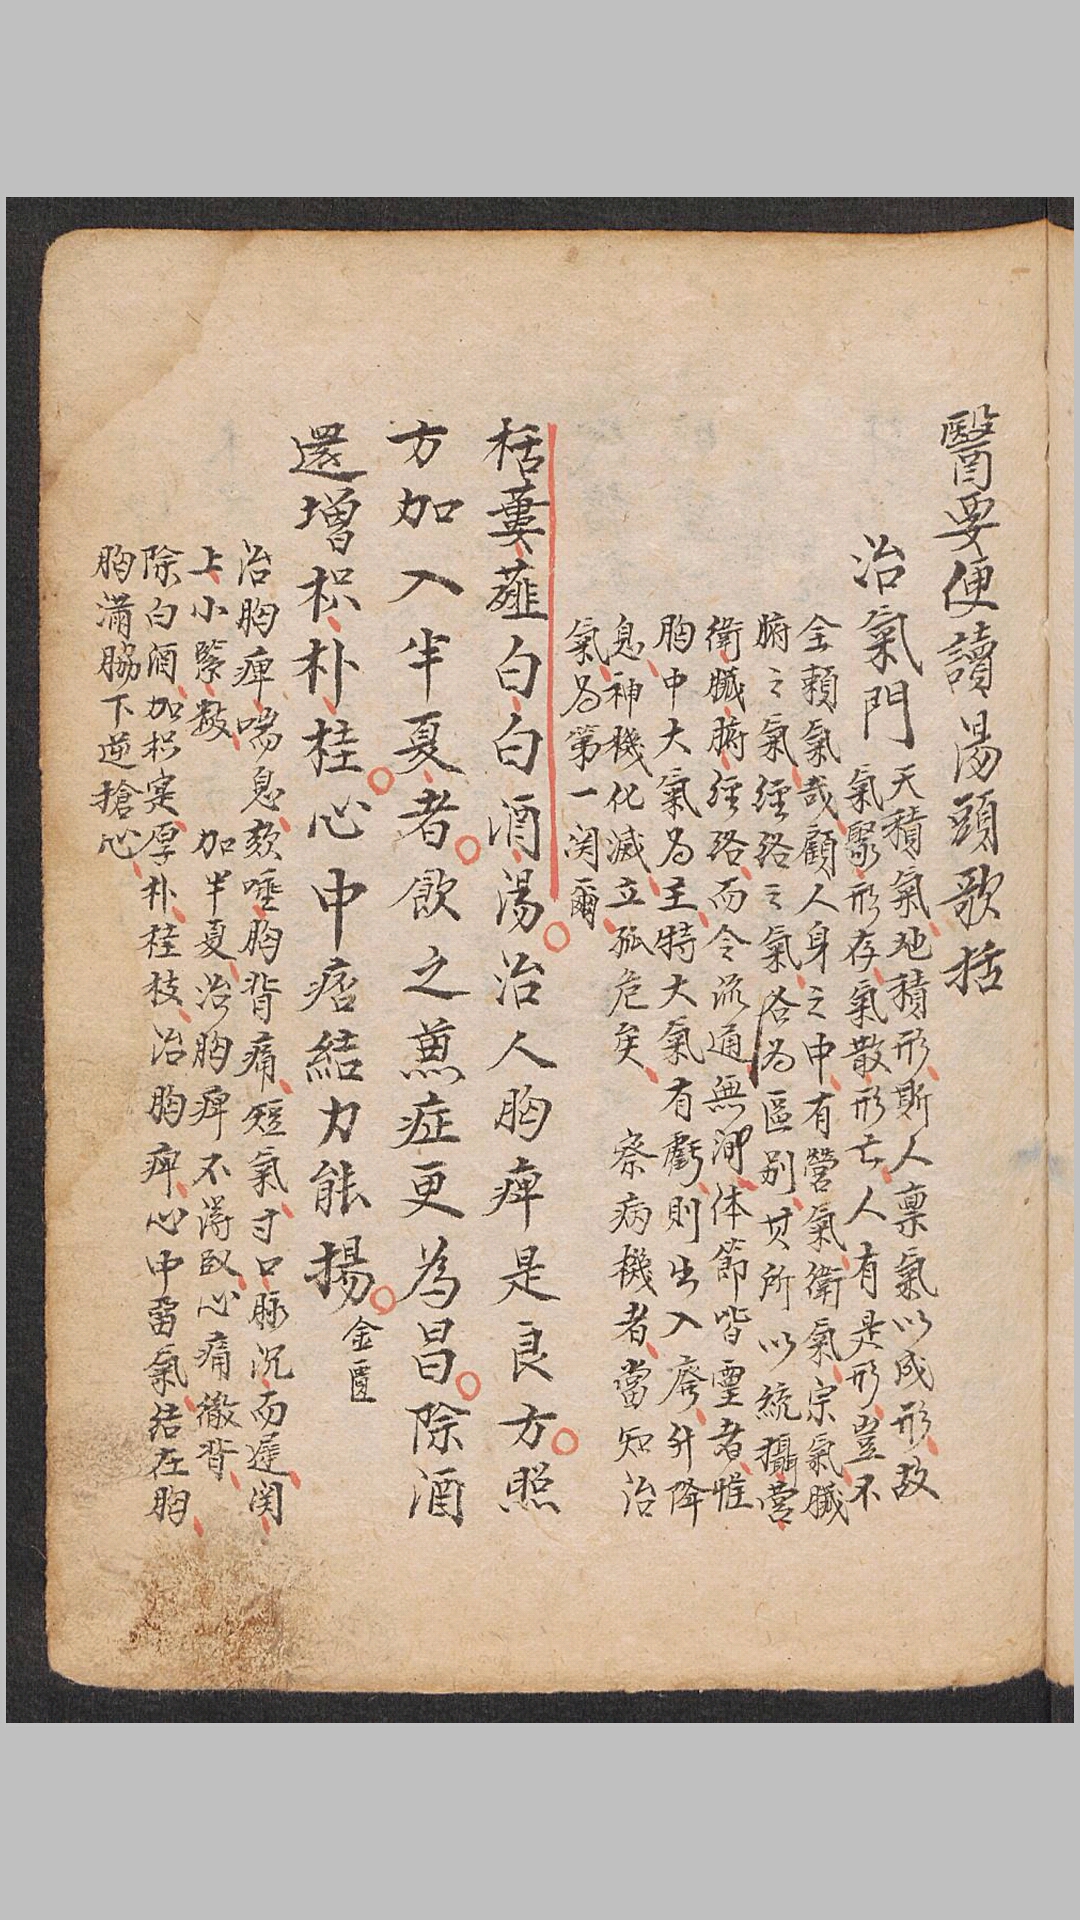 醫要便讀湯頭歌括
治氣門
天積氣地積形斯人稟氣以成形故
氣聚形存氣散形亡人有是形豈不
全賴氣哉顧人身之中有營氣衛氣宗氣臟
腑之氣經絡之氣各為區别其所以統攝營
衛臟腑經絡而令流通無间体節皆靈者惟
胸中大氣為主特大氣有虧則出入廢升降
息神機化滅立孤危矣 察病機者當知治
氣為第一関爾
栝蔞薤白白酒湯治人胸痺是良方照
方加入半夏者飲之兼症更為昌除酒
還增枳朴桂心中痞結力能揚 金匱
治胸痺喘息欬唾胸背痛短氣寸口脉沉而遲関
上小緊數 加半夏治胸痺不得臥心痛徹背
除白酒加枳寔厚朴桂枝治胸痺心中畱氣结在胸
胸滿脇下逆搶心